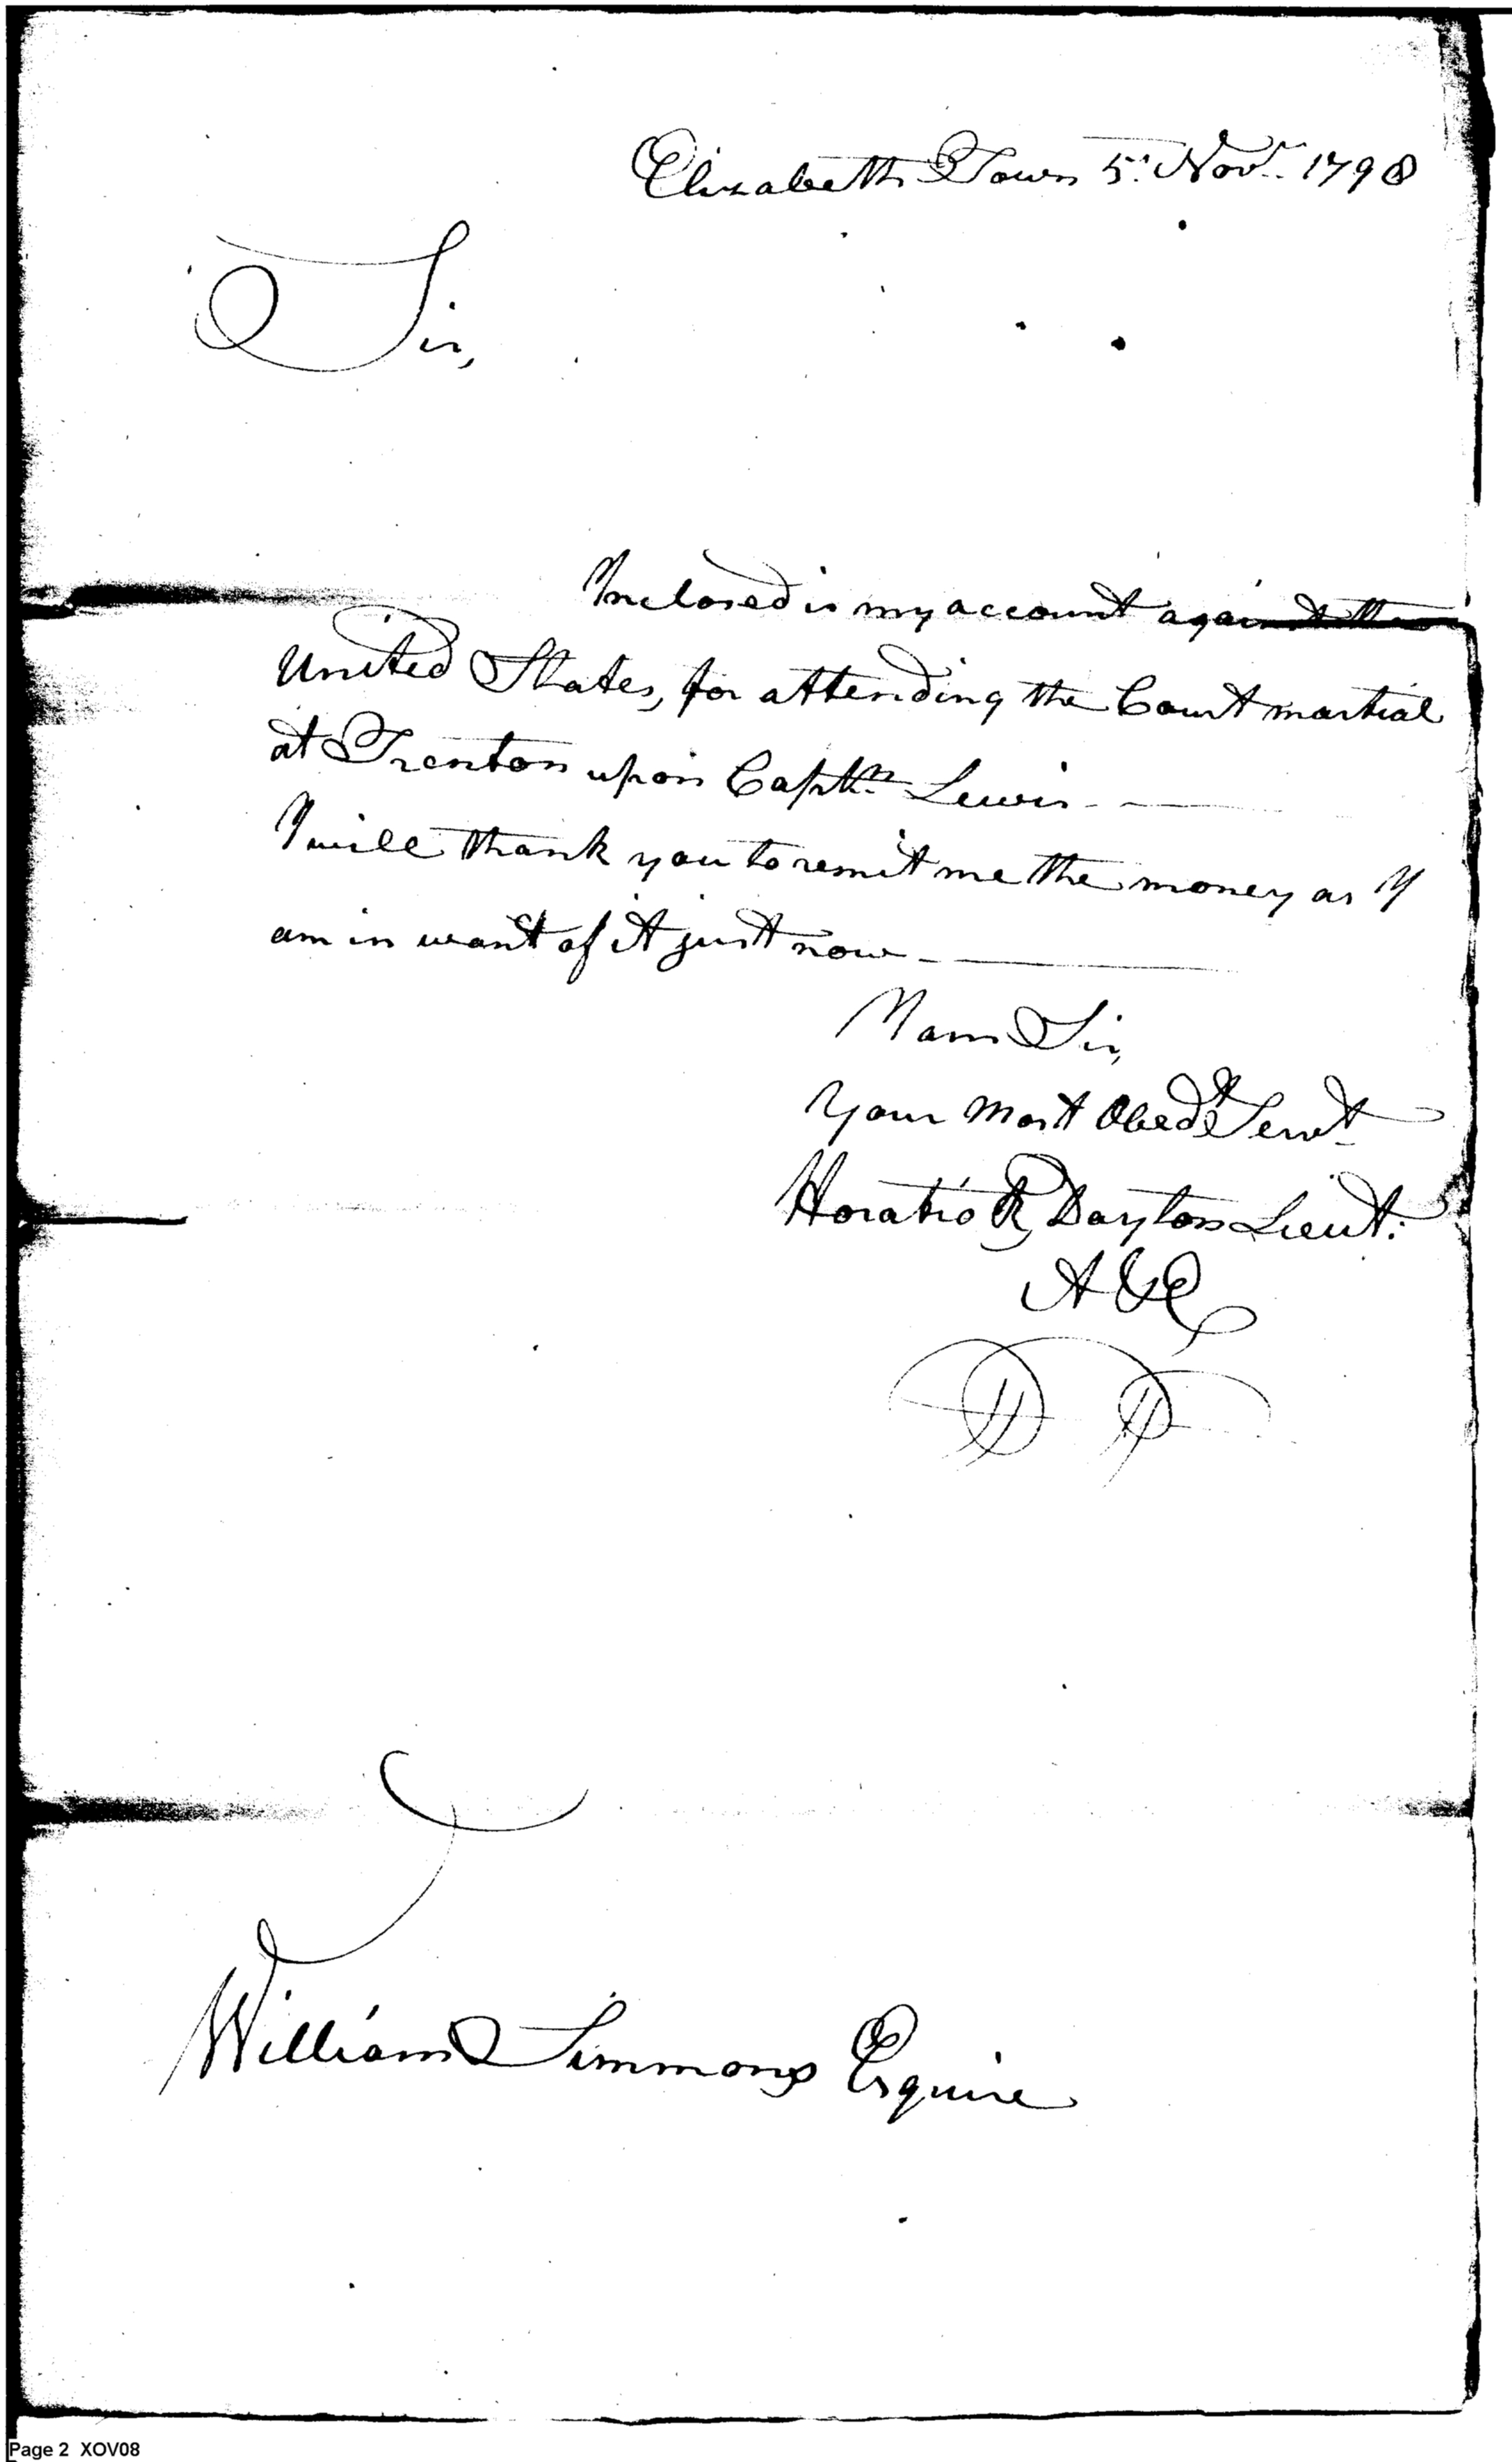 Elizabeth Town 5th Novr. 1798
Sir,
Inclosed is my account against the
United States, for attending the Court martial
at Trenton upon Captn Lewis
I will thank you to remit me the money as I
am in want of it just now
I am Sir,
Your Most Obedt Servt
Horatio R Dayton Lieut.
A&E
William Simmons Esquire
Page 2 XOV08